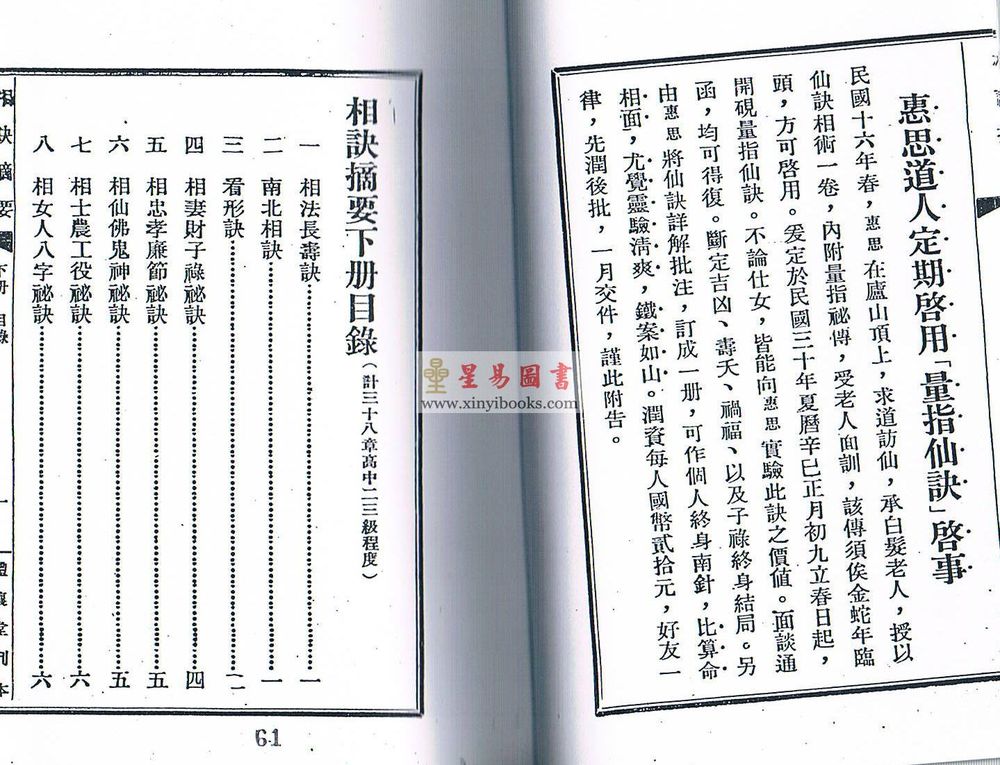 惪思道人定期啓用「量指仙訣」啓事
民國十六年春，惪思在廬山頂上，求道訪仙，承白髮老人，授以
仙訣相術一卷，內附量指祕傳，受老人面訓，該傳須俟金蛇年臨
頭，方可啓用。爰定於民國三十年夏曆辛巳正月初九立春日起，
開硯量指仙訣。不論仕女，皆能向惪思實驗此訣之價値。面談通
函，均可得復。斷定吉凶、壽夭、禍福、以及子祿終身結局。另
由惪思將仙訣詳解批注，訂成一册，可作個人終身南針，比算命
相面，尤覺靈驗淸爽，鐵案如山。潤資每人國幣貳拾元，好友一
律，先潤後批，一月交件，謹此附告。
星易圖書
www.xinyibooks.com
相訣摘要下册目錄（計三十八章高中二三級程度）
一 相法長壽訣 一
二 南北相訣 一
三 看形訣 二
四 相妻財子祿祕訣 四
五 相忠孝廉節祕訣 五
六 相仙佛鬼神祕訣 五
七 相士農工役祕訣 六
八 相女人八字祕訣 六
相訣摘要 下册 目錄 一 禮襄堂刊本
61